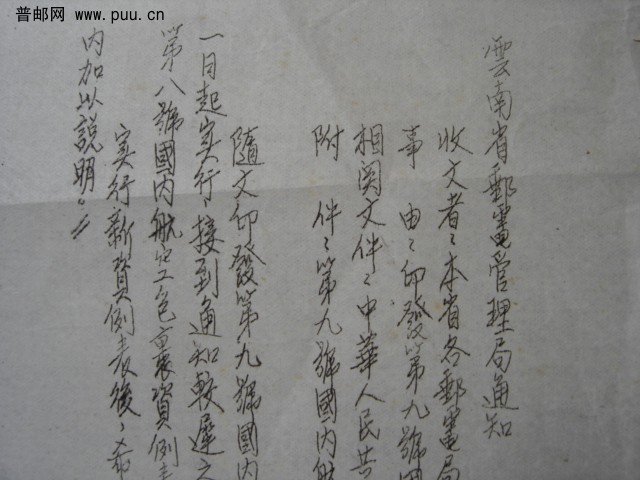 普邮网 www.puu.cn
雲南省郵電管理局通知
收文者：本省各郵電局
事　由：印發第九號國
相関文件：中華人民共
附　件：第九號國内航
隨文印發第九號國内
一日起实行，接到通知較遲之
第八號國内航空包裹資例表
实行新資例表後，希
内加以説明。